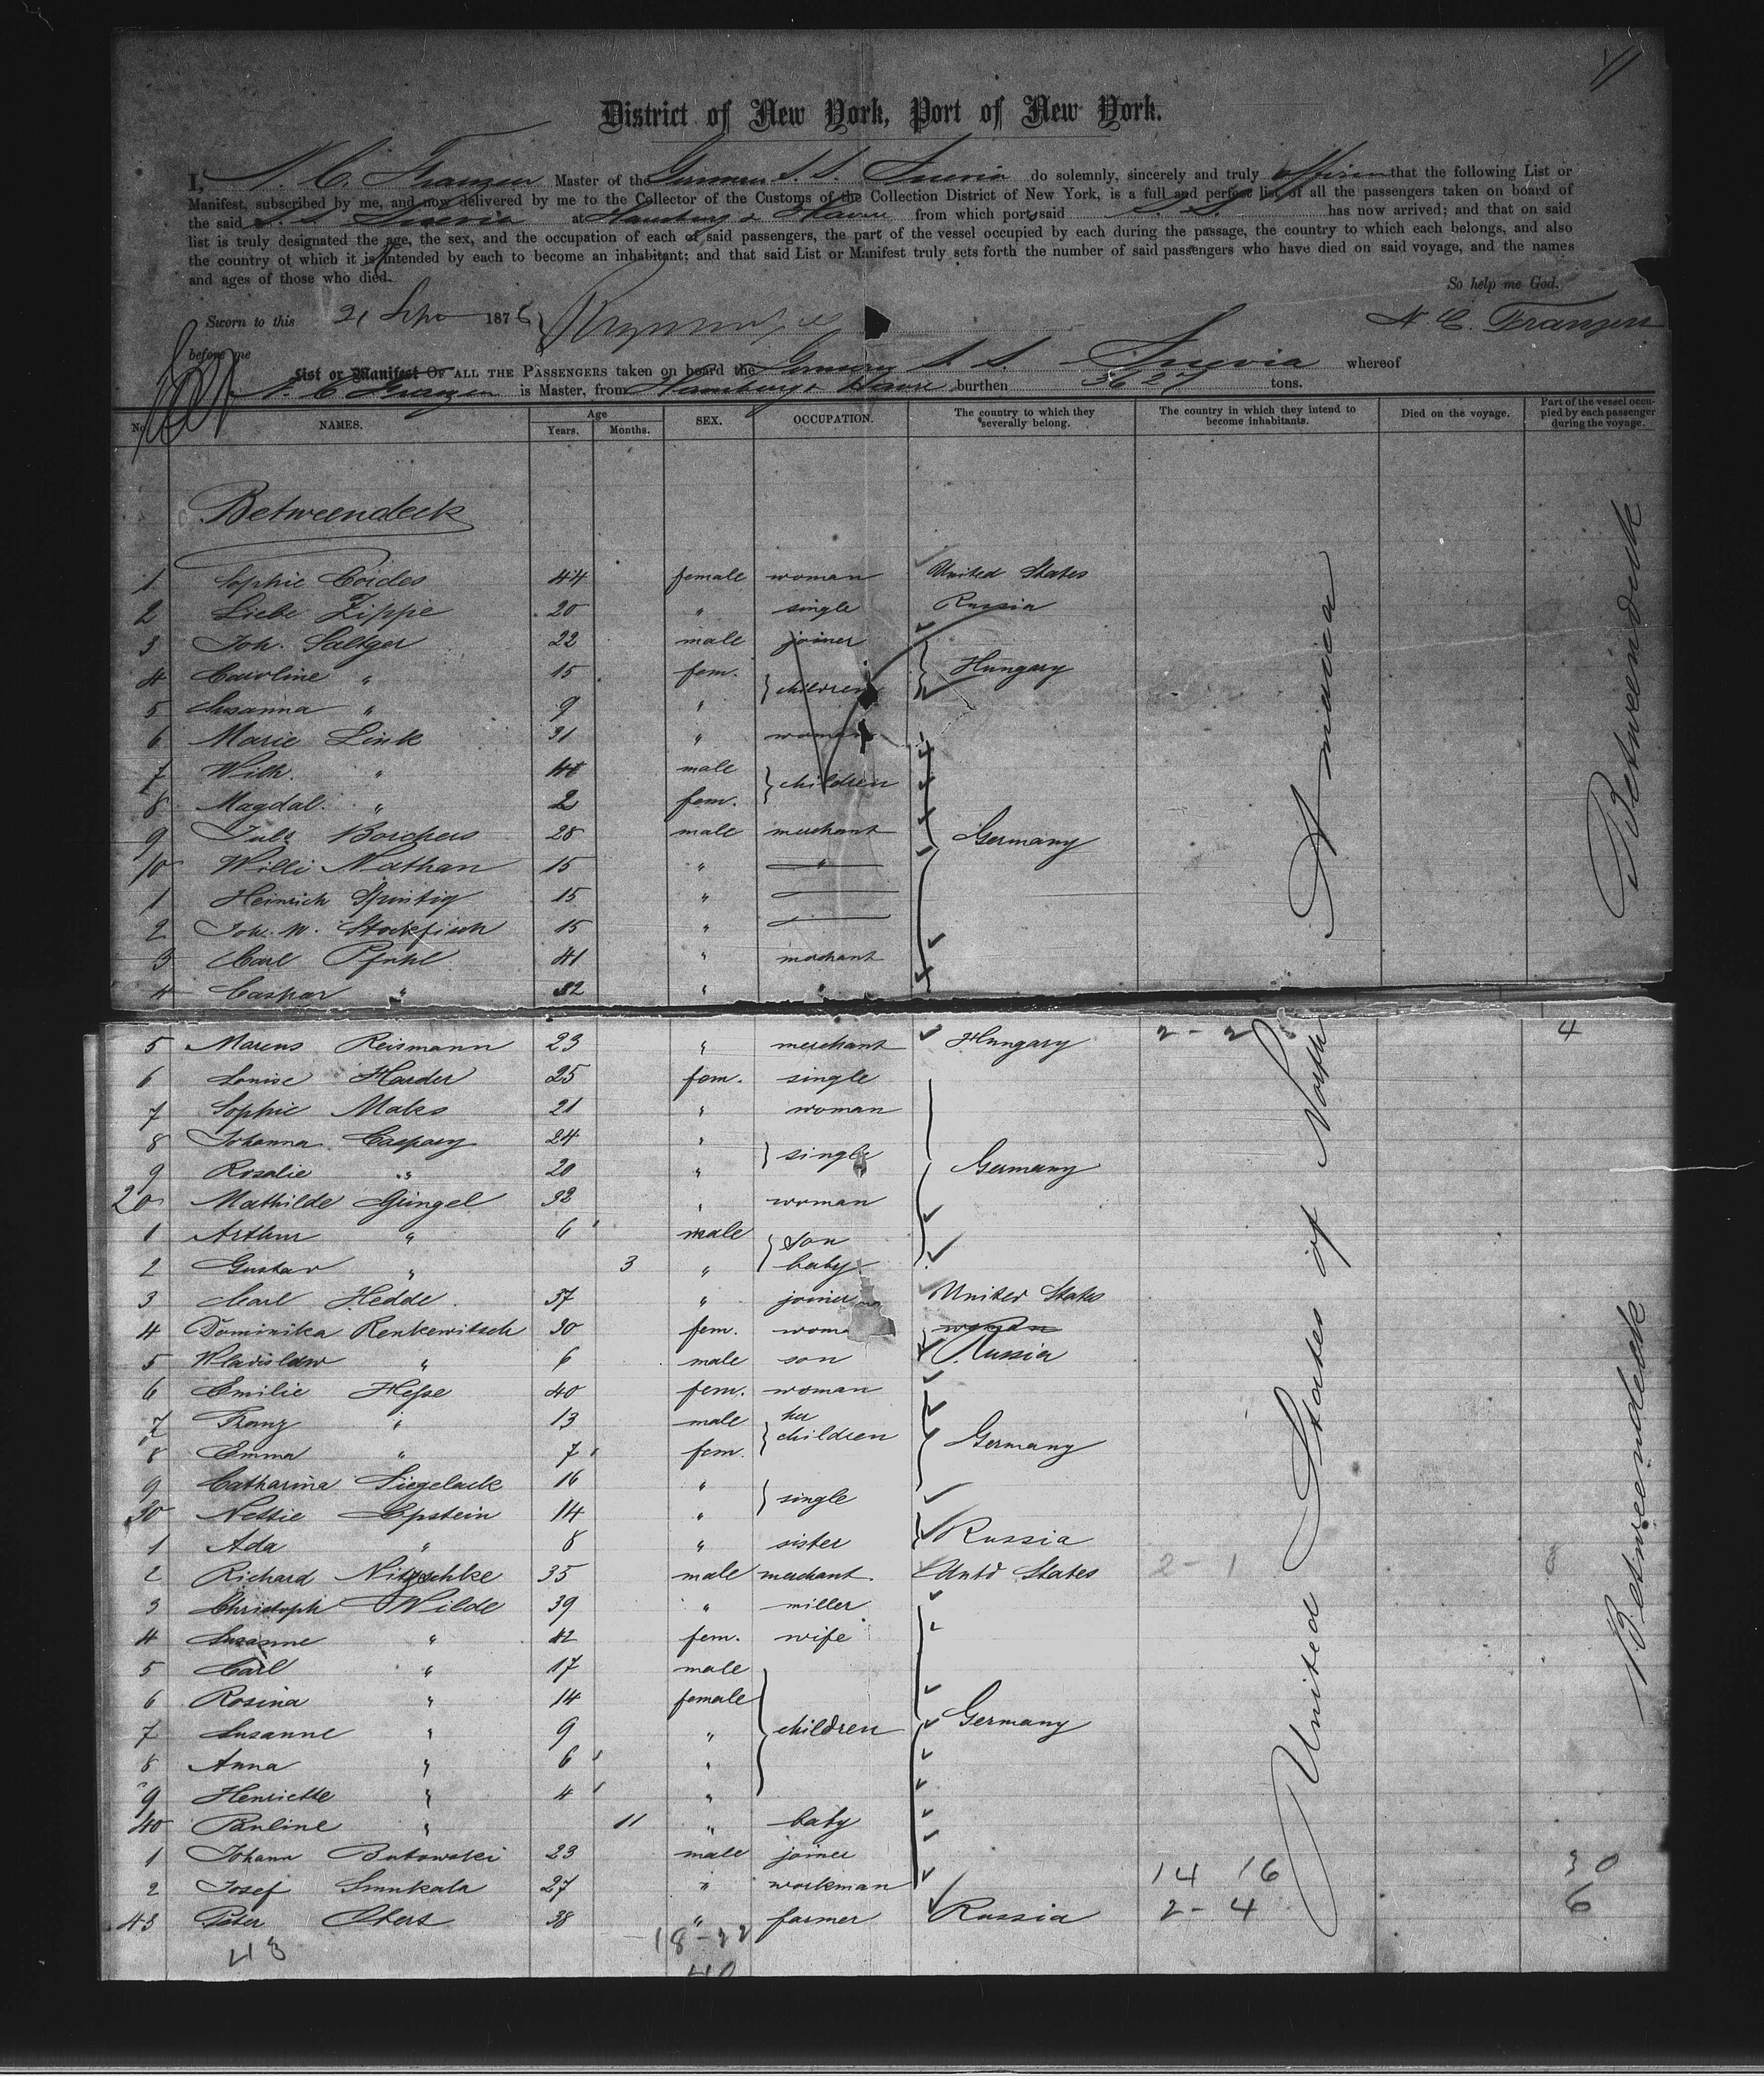 District of New York, Port of New York.
I, N. C. Franzen Master of the German S. S. Suevia do solemnly, sincerely and truly affirm that the following List or
Manifest, subscribed by me, and now delivered by me to the Collector of the Customs of the Collection District of New York, is a full and perfect list of all the passengers taken on board of
the said S. S. Suevia at Hamburg & Havre from which port said S. S. has now arrived; and that on said
list is truly designated the age, the sex, and the occupation of each of said passengers, the part of the vessel occupied by each during the passage, the country to which each belongs, and also
the country of which it is intended by each to become an inhabitant; and that said List or Manifest truly sets forth the number of said passengers who have died on said voyage, and the names
and ages of those who died.
So help me God.
Sworn to this 21 187
N. C. Franzen
before me
List or Manifest OF ALL THE PASSENGERS taken on board the S. S. Suevia whereof
N. C. Franzen is Master, from Hamburg & Havre burthen 3627 tons.
No. NAMES. Age Years. Months. SEX. OCCUPATION. The country to which they severally belong. The country in which they intend to become inhabitants. Died on the voyage. Part of the vessel occupied by each passenger during the voyage.
Betweendeck
1 Sophie Coides 44 female woman United States
2 Liebe Zippe 20 " single Russia
3 Joh. Saltzer 22 male joiner
4 Caroline " 15 fem. children Hungary
5 Susanna " 9 "
6 Marie Link 31 " woman
7 Wilh. " male children
8 Magdal. " 2 fem.
9 Juls Borchers 28 male merchant Germany
10 Willi Nathan 15 " "
1 Heinrich Spintig 15 "
2 Joh. W. Stockfisch 15 "
3 Carl Pfuhl 41 " merchant
4 Caspar " 32 "
5 Marcus Reismann 23 " merchant Hungary 2 - 2 4
6 Louise Harder 25 fem. single
7 Sophie Maks 21 " woman
8 Johanna Caspary 24 " single
9 Rosalie " 20 " Germany
20 Mathilde Güngel 32 " woman
1 Arthur " 6 male son
2 Gustav " 3 " baby
3 Carl Hedde 37 " joiner United States
4 Dominika Renkewitsch 30 fem. woman
5 Wladislaw " 6 male son Russia
6 Emilie Hesse 40 fem. woman
7 Franz " 13 male her children
8 Emma " 7 fem. Germany
9 Catharina Siegelack 16 " single
30 Nettie Epstein 14 "
1 Ada " 8 " sister Russia
2 Richard Nitzschke 35 male merchant Untd States 2 - 1
3 Christoph Wilde 39 " miller
4 Susanne " 42 fem. wife
5 Carl " 17 male
6 Rosina " 14 female
7 Susanne " 9 " children Germany
8 Anna " 6 "
9 Henriette " 4 "
40 Pauline " 11 " baby
1 Johann Butowski 23 male joiner
2 Josef Smukala 27 " workman 14 16 30
43 Peter Obert 38 " farmer Russia 2 - 4 6
43 18-22
40
United States of North America
Betweendeck
Betweendeck